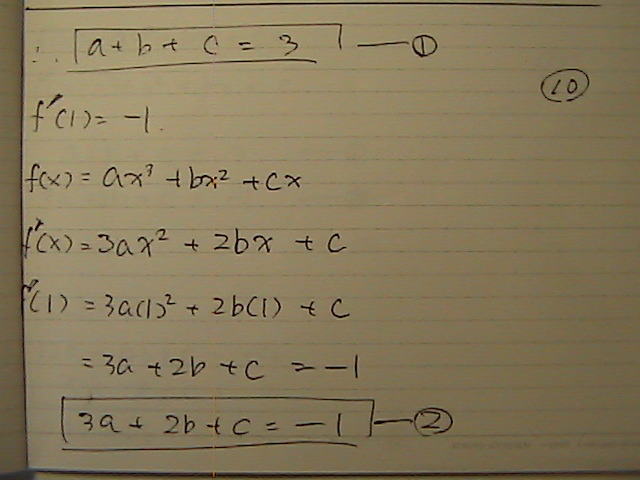 ∴ a + b + c = 3 — ①
⑩
f'(1) = -1.
f(x) = ax³ + bx² + cx
f'(x) = 3ax² + 2bx + c
f'(1) = 3a(1)² + 2b(1) + c
= 3a + 2b + c = -1
3a + 2b + c = -1 — ②